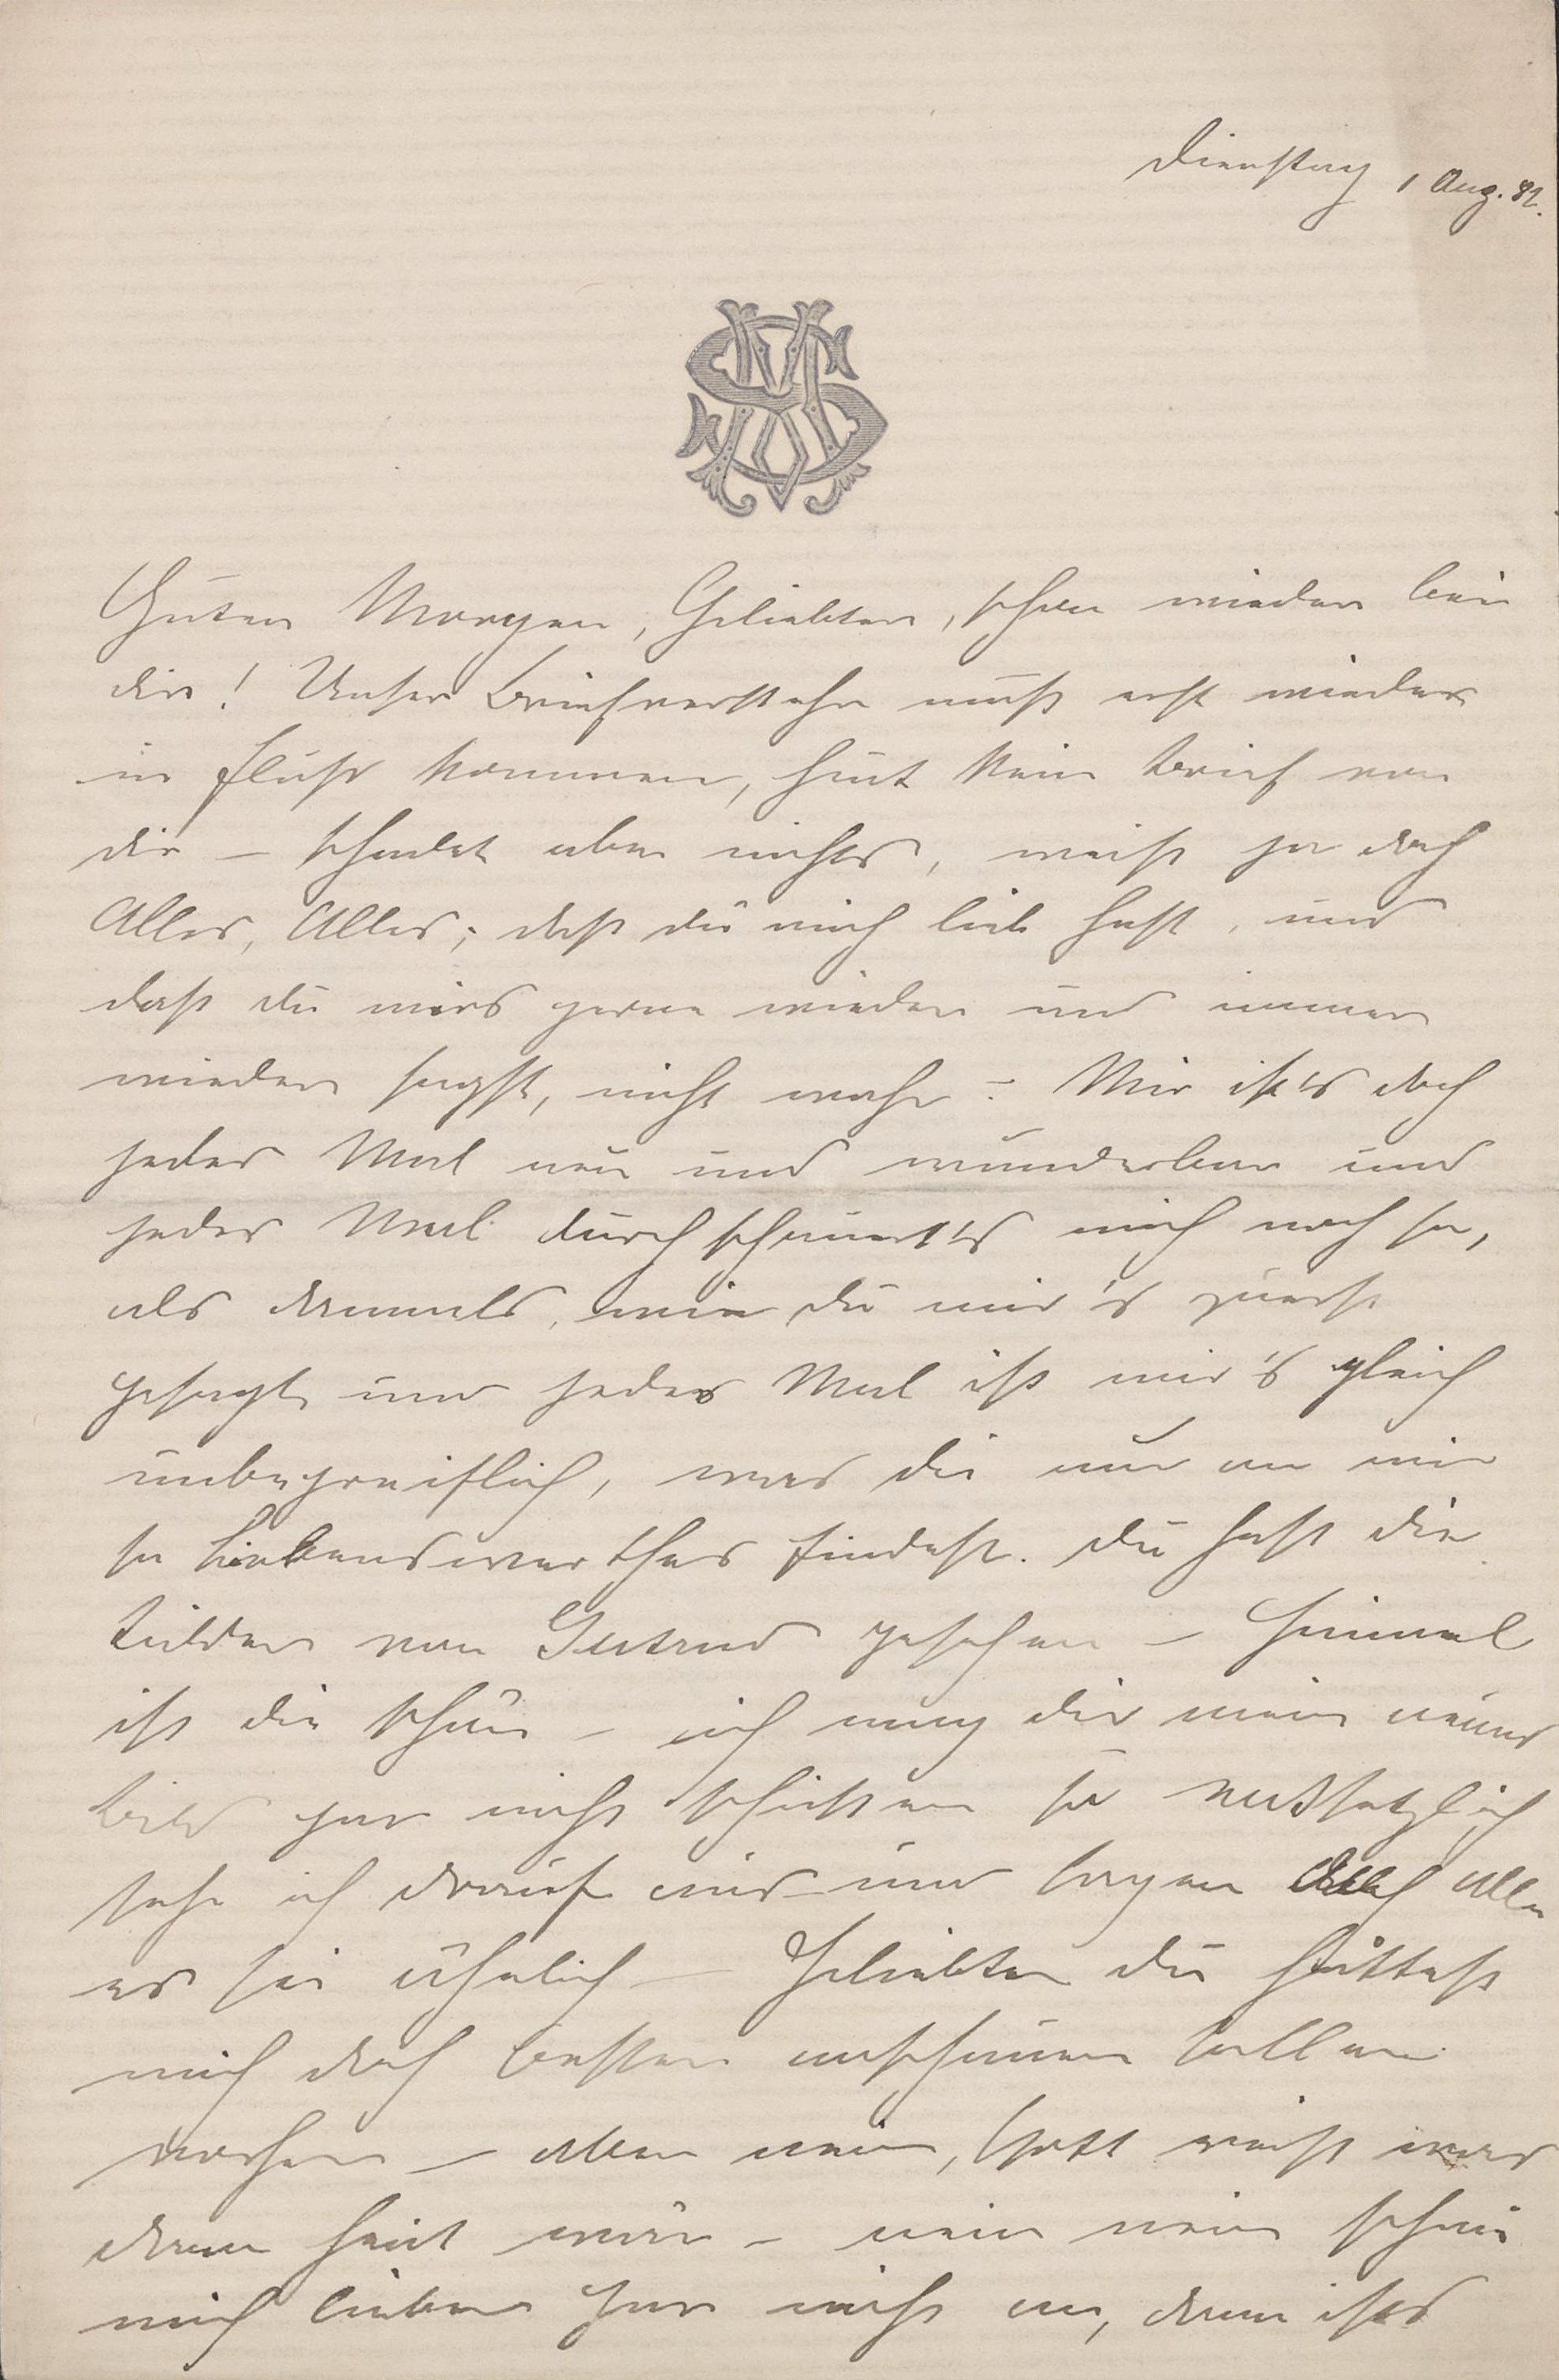 Dienstag 1 Aug. 82.
Guten Morgen, Geliebter, schon wieder bei
dir! Unser Briefverkehr muß erst wieder
in Fluß kommen, heut kein Brief von
dir – schadet aber nichts, weiß ja doch
Alles, Alles; daß du mich lieb hast, und
daß du mirs gerne wieder und immer
wieder sagst, nicht wahr? Mir ist's doch
jedes Mal neu und wunderbar und
jedes Mal durchschauert's mich noch so,
als damals, wie du mir's zuerst
gesagt und jedes Mal ist mir's gleich
unbegreiflich, was du nur an mir
so Liebenswerthes findest. Du hast die
Bilder von Gertrud gesehen – Himmel
ist die schön – ich mag dir mein neues
Bild gar nicht schicken so entsetzlich
sehe ich drauf aus und sagen doch Alle
es sei ähnlich – Geliebter du hättest
mich doch besser anschauen sollen
vorher – aber nein, Gott weiß was
dann heut wär – nein nein schau
mich lieber gar nicht an, dann ists